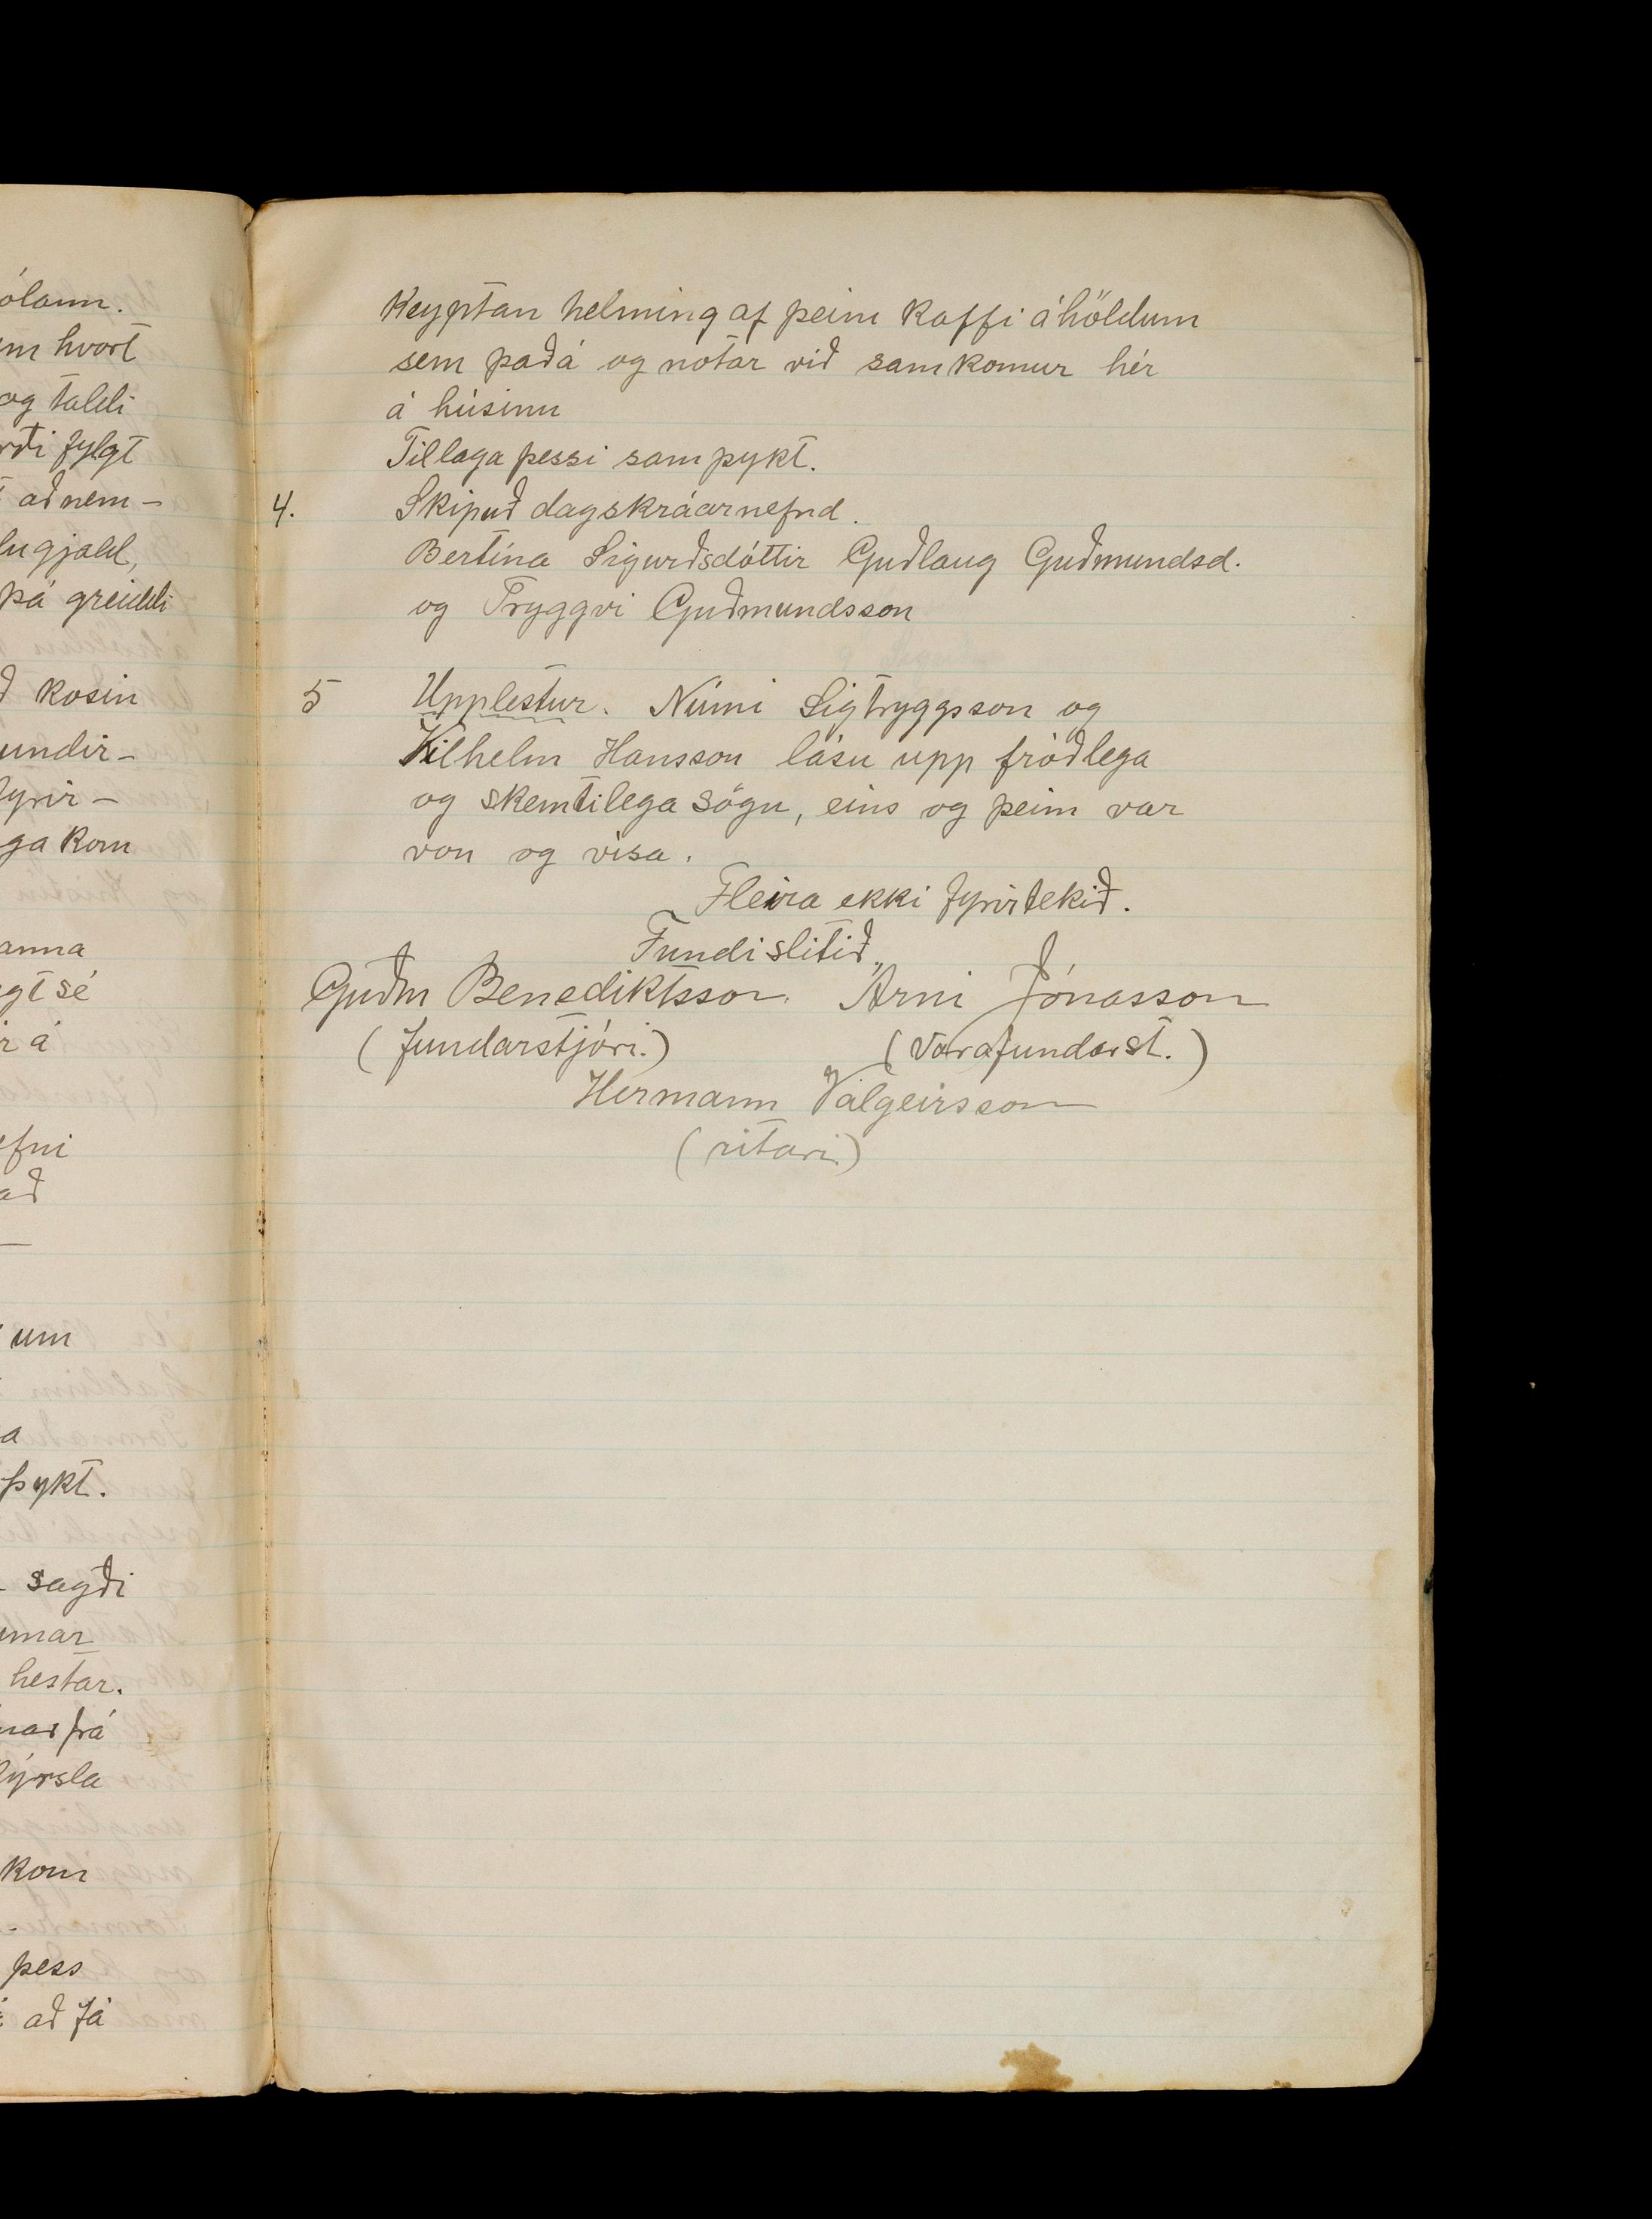 ólann.
um hvort
og taldi
rði fylgt
að nem-
lugjald,
þá greiddi
ð kosin
undir-
fyrir-
ga kom
anna
gt sé
ir á
efni
að
um
a
þykt.
sagði
umar
hestar.
nar frá
kýrsla
kom
þess
að fá
Keyptan helming af þeim kaffi áhöldum
sem það á og notar við samkomur hér
á húsinu
Tillaga þessi samþykt.
4. Skipuð dagskráarnefnd.
Bertína Sigurðsdóttir Guðlaug Guðmundsd.
og Tryggvi Guðmundsson
5 Upplestur. Númi Sigtryggsson og
Vilhelm Hansson lásu upp fróðlega
og skemtilega sögu, eins og þeim var
von og vísa.
Fleira ekki fyrirtekið.
Fundi slitið.
Guðm Benediktsson. Árni Jónasson
(fundarstjóri.) (Varafundarst.)
Hermann Valgeirsson
(ritari)